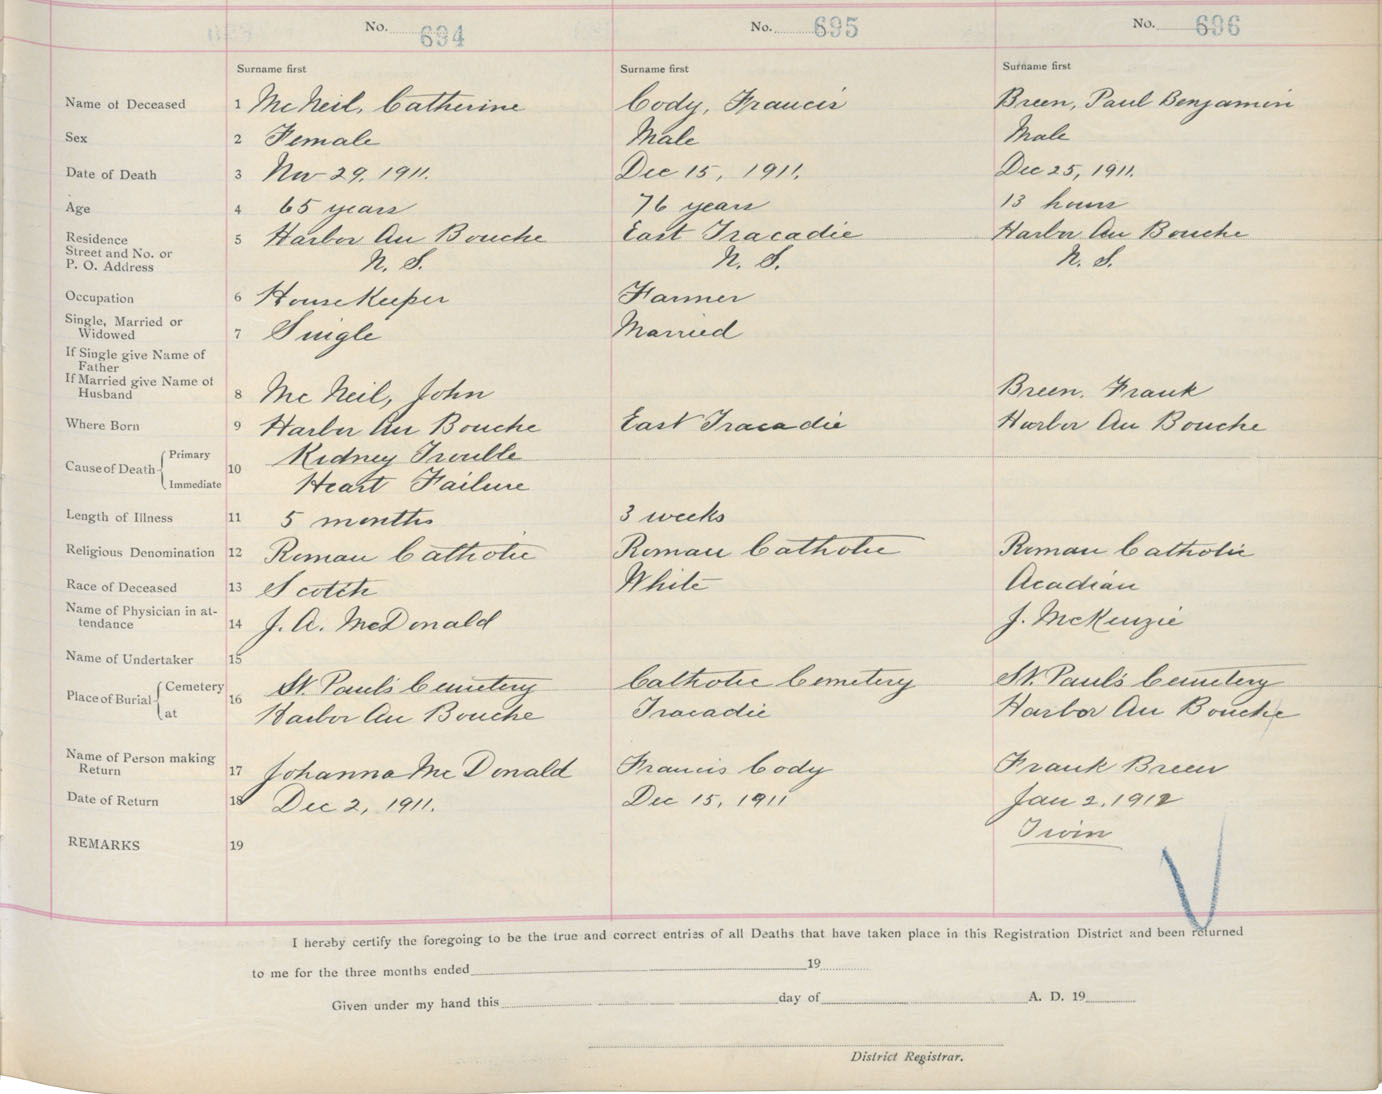 No. 694 No. 695 No. 696
Surname first Surname first Surname first
Name of Deceased 1 McNeil, Catherine Cody, Francis Breen, Paul Benjamin
Sex 2 Female Male Male
Date of Death 3 Nov 29. 1911. Dec 15, 1911. Dec 25, 1911.
Age 4 65 years 76 years 13 hours
Residence 5 Harbor Au Bouche East Tracadie Harbor Au Bouche
Street and No. or
P. O. Address N. S. N. S. N. S.
Occupation 6 HouseKeeper Farmer
Single, Married or
Widowed 7 Single Married
If Single give Name of
Father
If Married give Name of
Husband 8 McNeil, John Breen, Frank
Where Born 9 Harbor Au Bouche East Tracadie Harbor Au Bouche
Cause of Death 10 Primary Kidney Trouble
Immediate Heart Failure
Length of Illness 11 5 months 3 weeks
Religious Denomination 12 Roman Catholic Roman Catholic Roman Catholic
Race of Deceased 13 Scotch White Acadian
Name of Physician in at-
tendance 14 J. A. McDonald J. McKenzie
Name of Undertaker 15
Place of Burial 16 Cemetery St. Paul's Cemetery Catholic Cemetery St. Paul's Cemetery
at Harbor Au Bouche Tracadie Harbor Au Bouche
Name of Person making
Return 17 Johanna McDonald Francis Cody Frank Breen
Date of Return 18 Dec 2, 1911. Dec 15, 1911 Jan 2, 1912
REMARKS 19 Twin
I hereby certify the foregoing to be the true and correct entries of all Deaths that have taken place in this Registration District and been returned
to me for the three months ended 19
Given under my hand this day of A. D. 19
District Registrar.